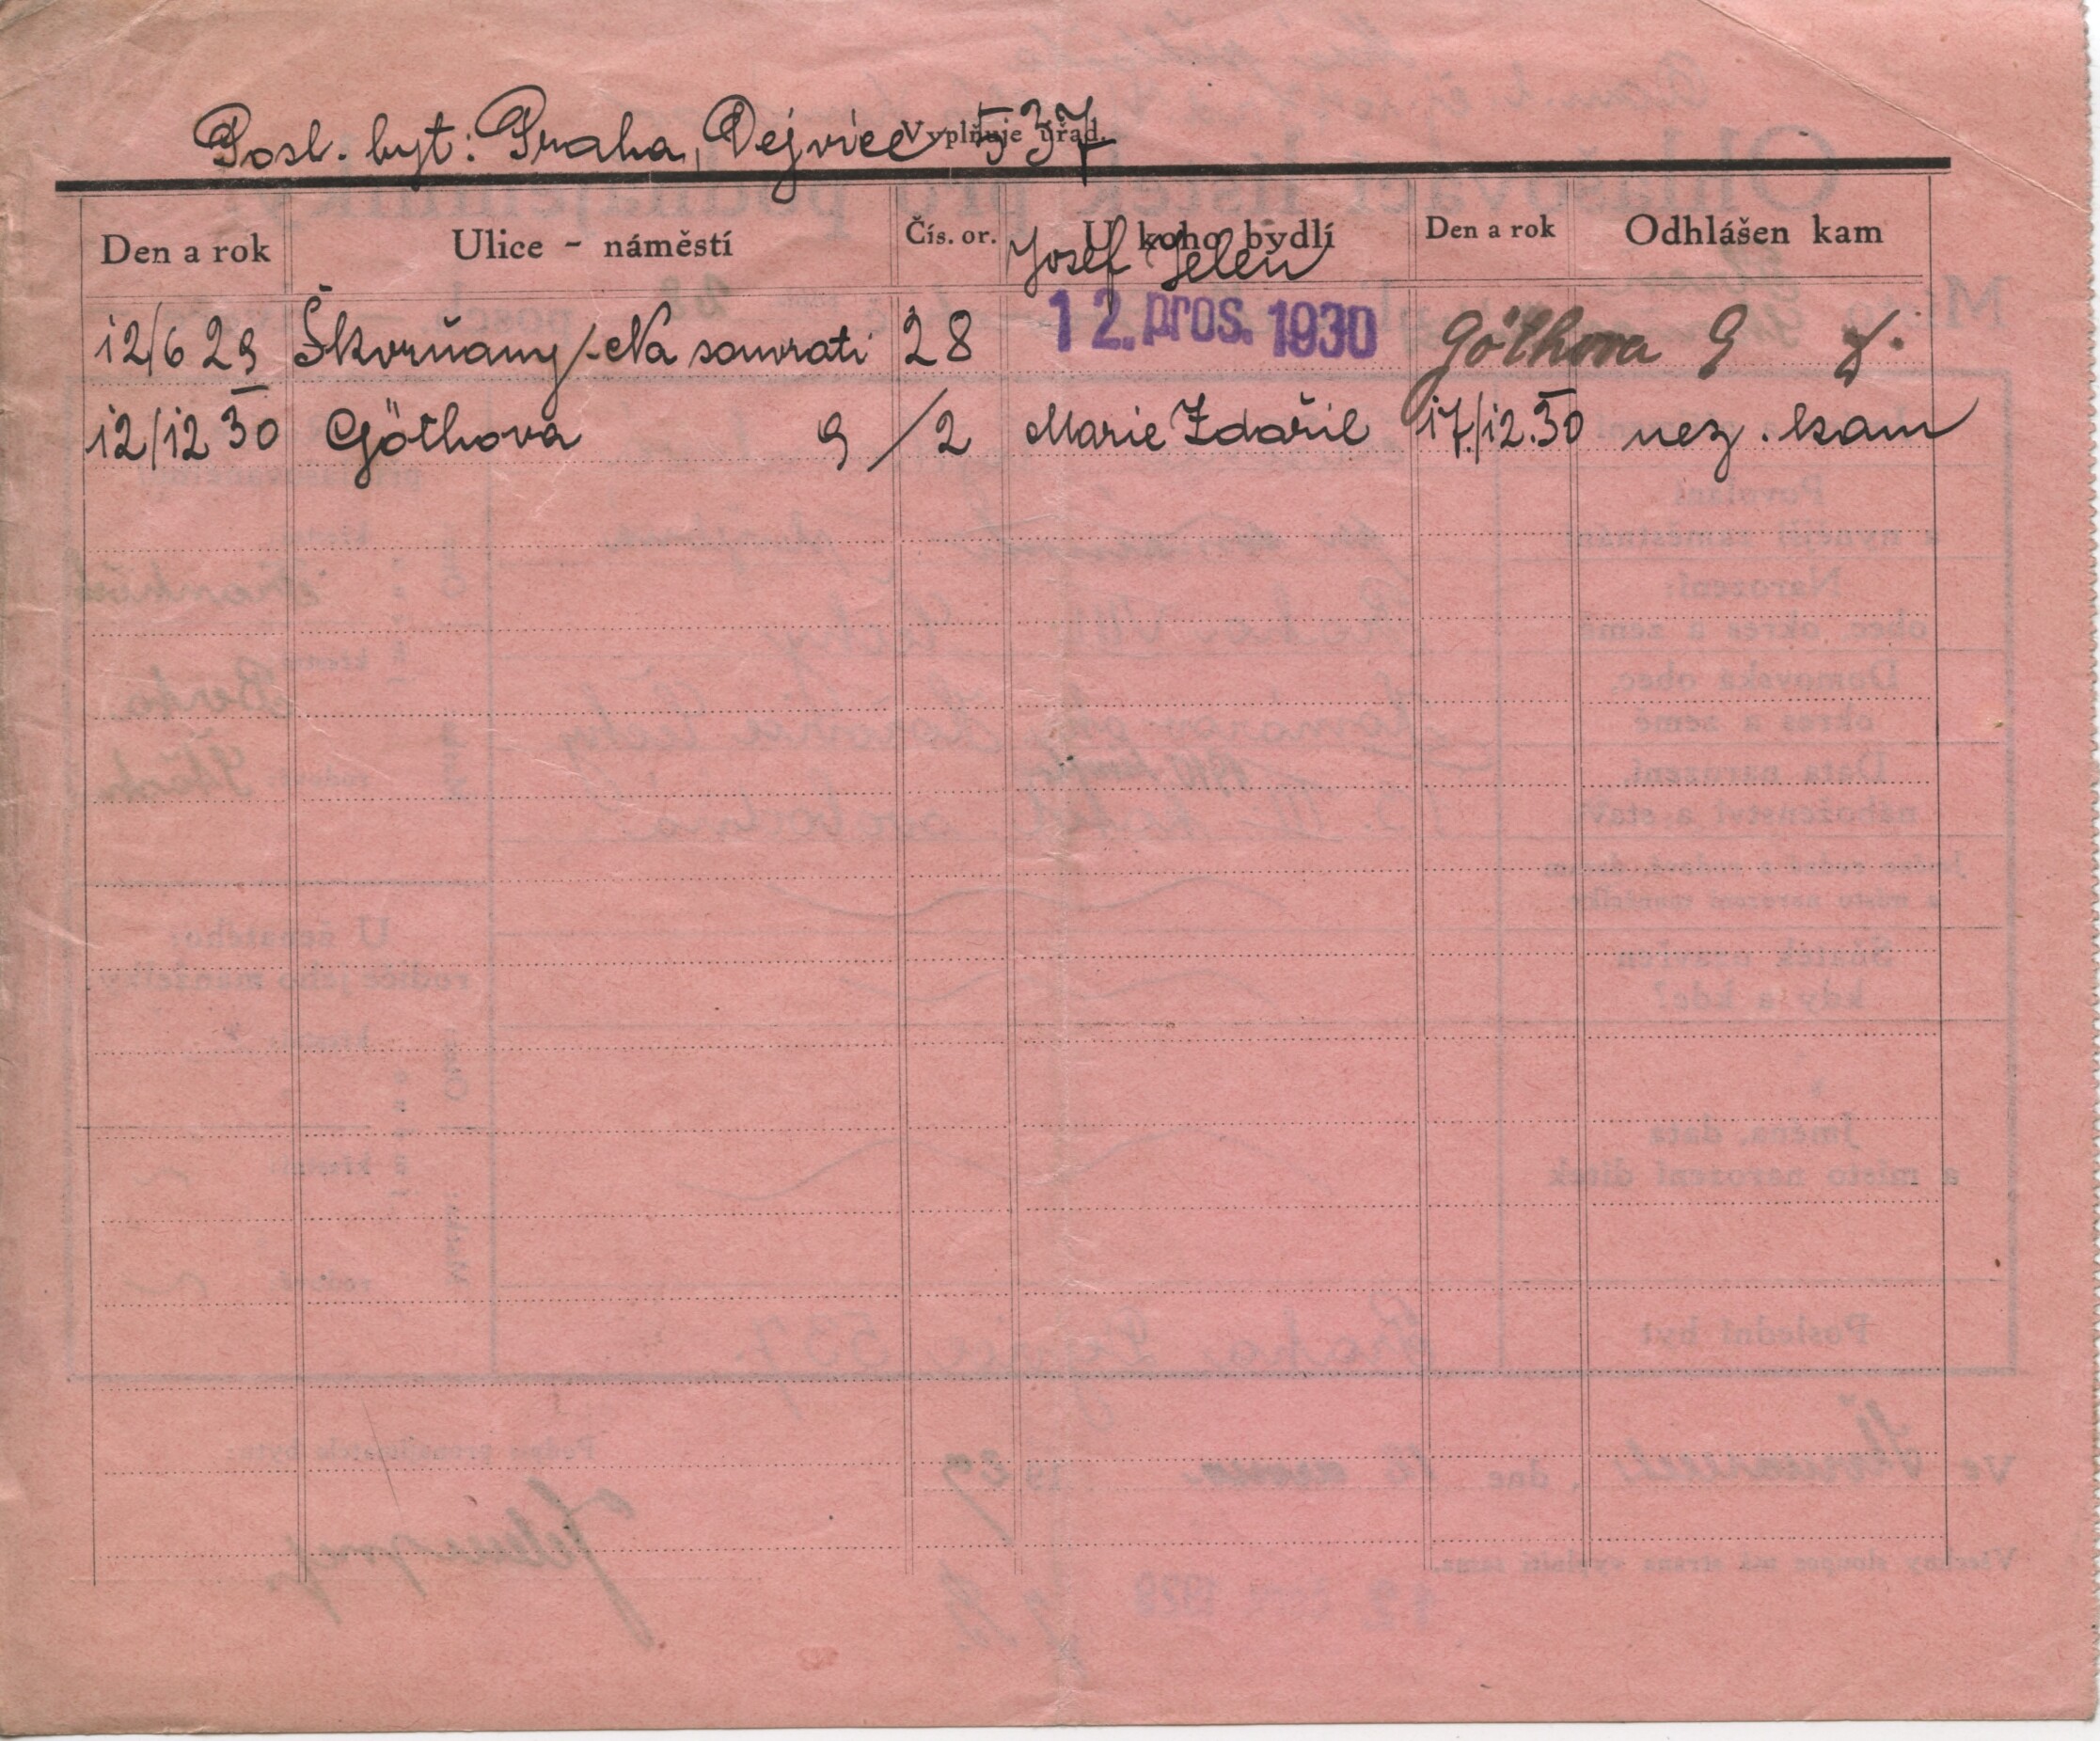 Posl. byt: Praha, Dejvice 537
Vyplňuje úřad.
Den a rok Ulice - náměstí Čís. or. U koho bydlí Den a rok Odhlášen kam
Josef Jelen
12/6 29 Škvrňany/-Na souvrati 28 12. pros. 1930 Göthova 9
12/12 30 Göthova 9/2 Marie Zdařil 17/12.30 nez. kam